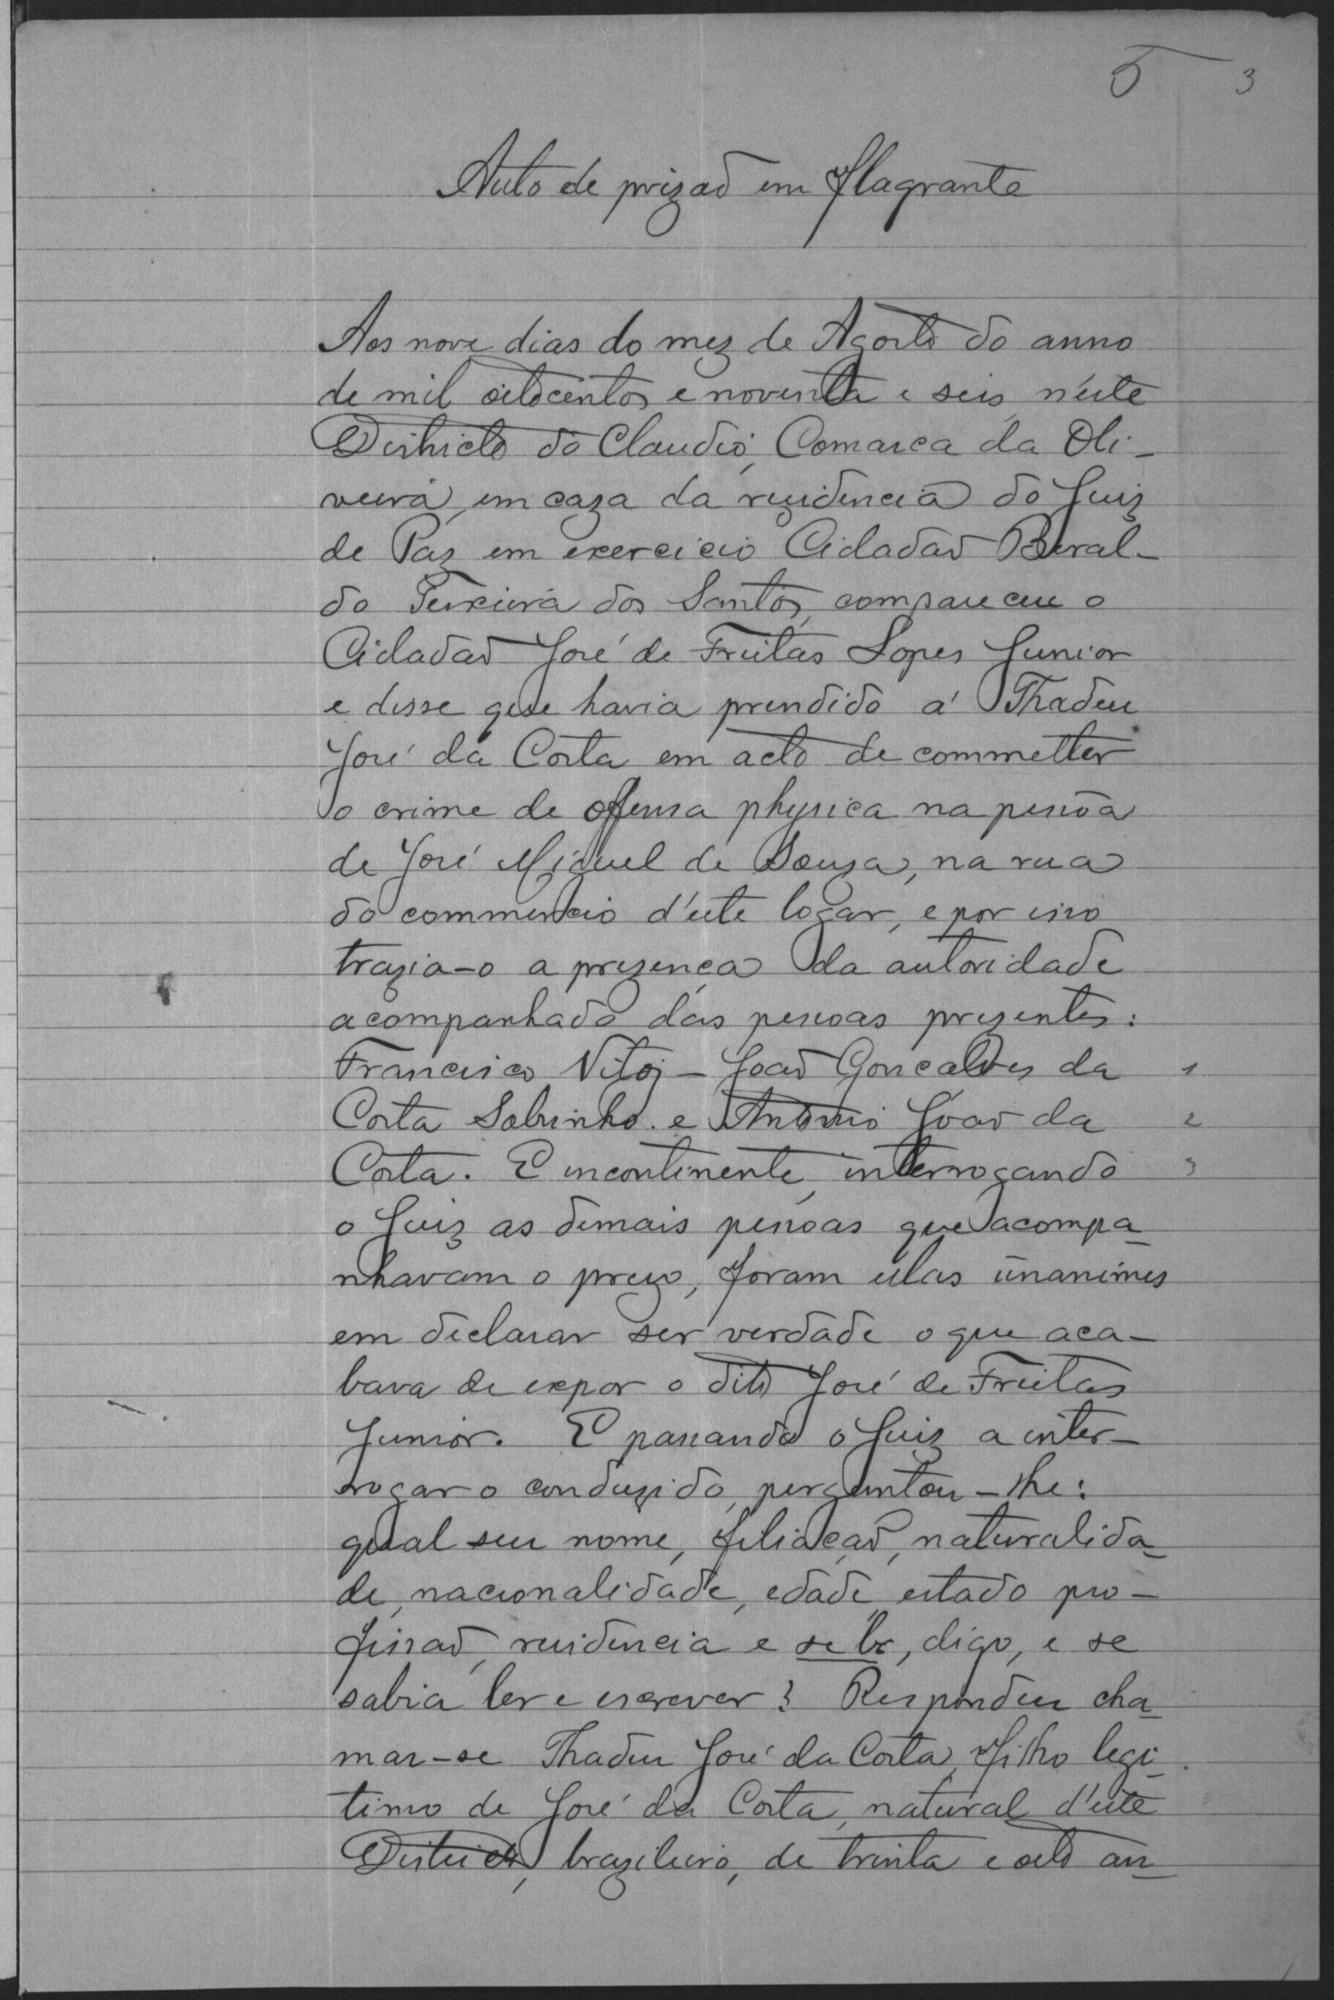 5 3
Auto de prizaõ em flagrante
Aos nove dias do mez de Agosto do anno
de mil oitocentos e noventa e seis n'este
Districto do Claudio, Comarca da Oli-
veira, em caza da rezidencia do Juiz
de Paz em exercicio Cidadaõ Beral-
do Teixeira dos Santos, compareceu o
Cidadaõ José de Freitas Lopes Junior
e disse que havia prendido á Thadeu
José da Costa em acto de commetter
o crime de offensa physica na pessôa
de José Miguel de Souza, na rua
do commercio d'este logar, e por isso
trazia-o a prezença da autoridade
acompanhado das pessoas prezentes:
Francisco - Joaõ Gonçalves da 1
Costa Sobrinho. e Antonio Joaõ da 2
Costa. E incontinente, interrogando 3
o Juiz as demais pessôas que acompa-
nhavam o prezo, foram ellas unanimes
em declarar ser verdade o que aca-
bava de expor o dito José de Freitas
Junior. E passando o Juiz a inter-
rogar o conduzido, perguntou-lhe:
qual seu nome, filiaçaõ, naturalida-
de, nacionalidade, edade, estado pro-
fissaõ, residencia e se le, digo, e se
sabia ler e escrever? Respondeu cha-
mar-se Thadeu José da Costa, filho legi-
timo de José da Costa, natural d'este
Districto, brazileiro, de trinta e oito an-